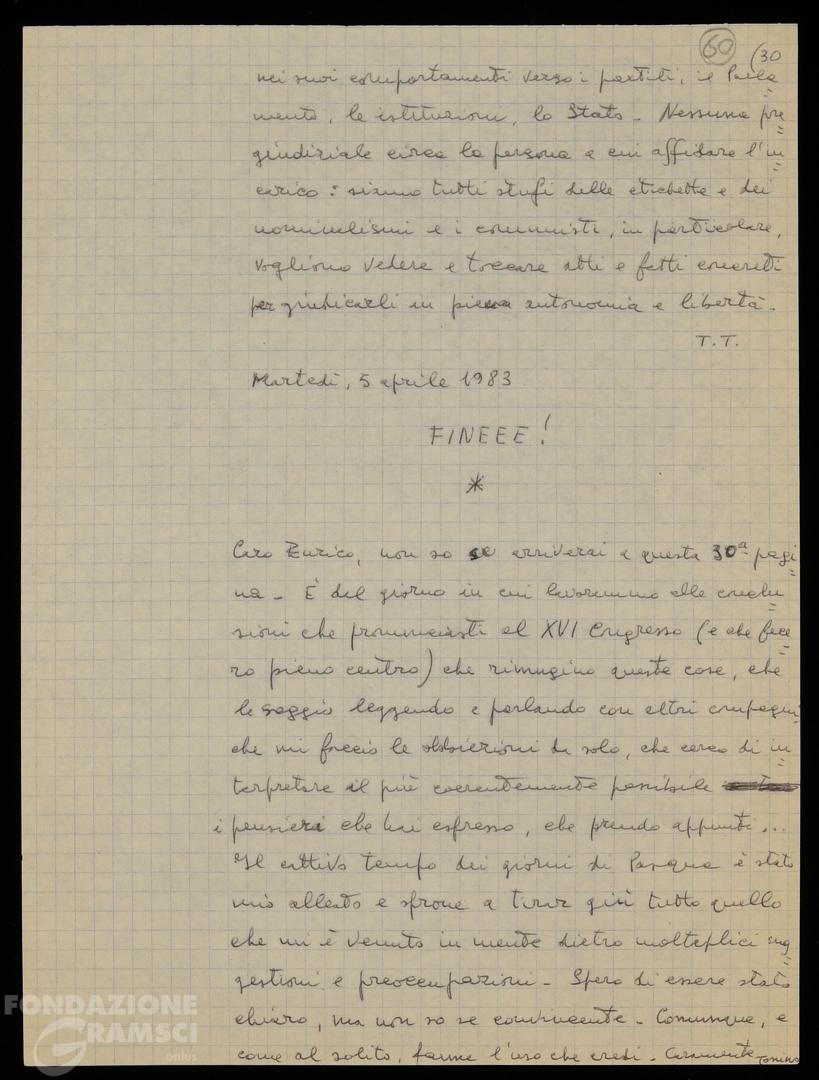 60 (30
nei suoi comportamenti verso i partiti, il Parla=
mento, le istituzioni, lo Stato - Nessuna pre=
giudiziale circa la persona a cui affidare l'in=
carico: siamo tutti stufi delle etichette e dei
nominalismi e i comunisti, in particolare,
vogliono vedere e toccare atti e fatti concreti
per giudicarli in piena autonomia e libertà.
T.T.
Martedì, 5 aprile 1983
FINEEE!
*
Caro Enrico, non so se arriverai a questa 30ª pagi=
na - È dal giorno in cui lavorammo alle conclu=
sioni che pronunciasti al XVI Congresso (e che fece=
ro pieno centro) che rimugino queste cose, che
le saggio leggendo e parlando con altri compagni,
che mi faccio le obbiezioni da solo, che cerco di in=
terpretare il più coerentemente possibile
i pensieri che hai espresso, che prendo appunti...
Il cattivo tempo dei giorni di Pasqua è stato
mio alleato e sprone a tirar giù tutto quello
che mi è venuto in mente dietro molteplici sug=
gestioni e preoccupazioni - Spero di essere stato
chiaro, ma non so se convincente - Comunque, e
come al solito, fanne l'uso che credi - Caramente Tonino
FONDAZIONE
GRAMSCI
onlus